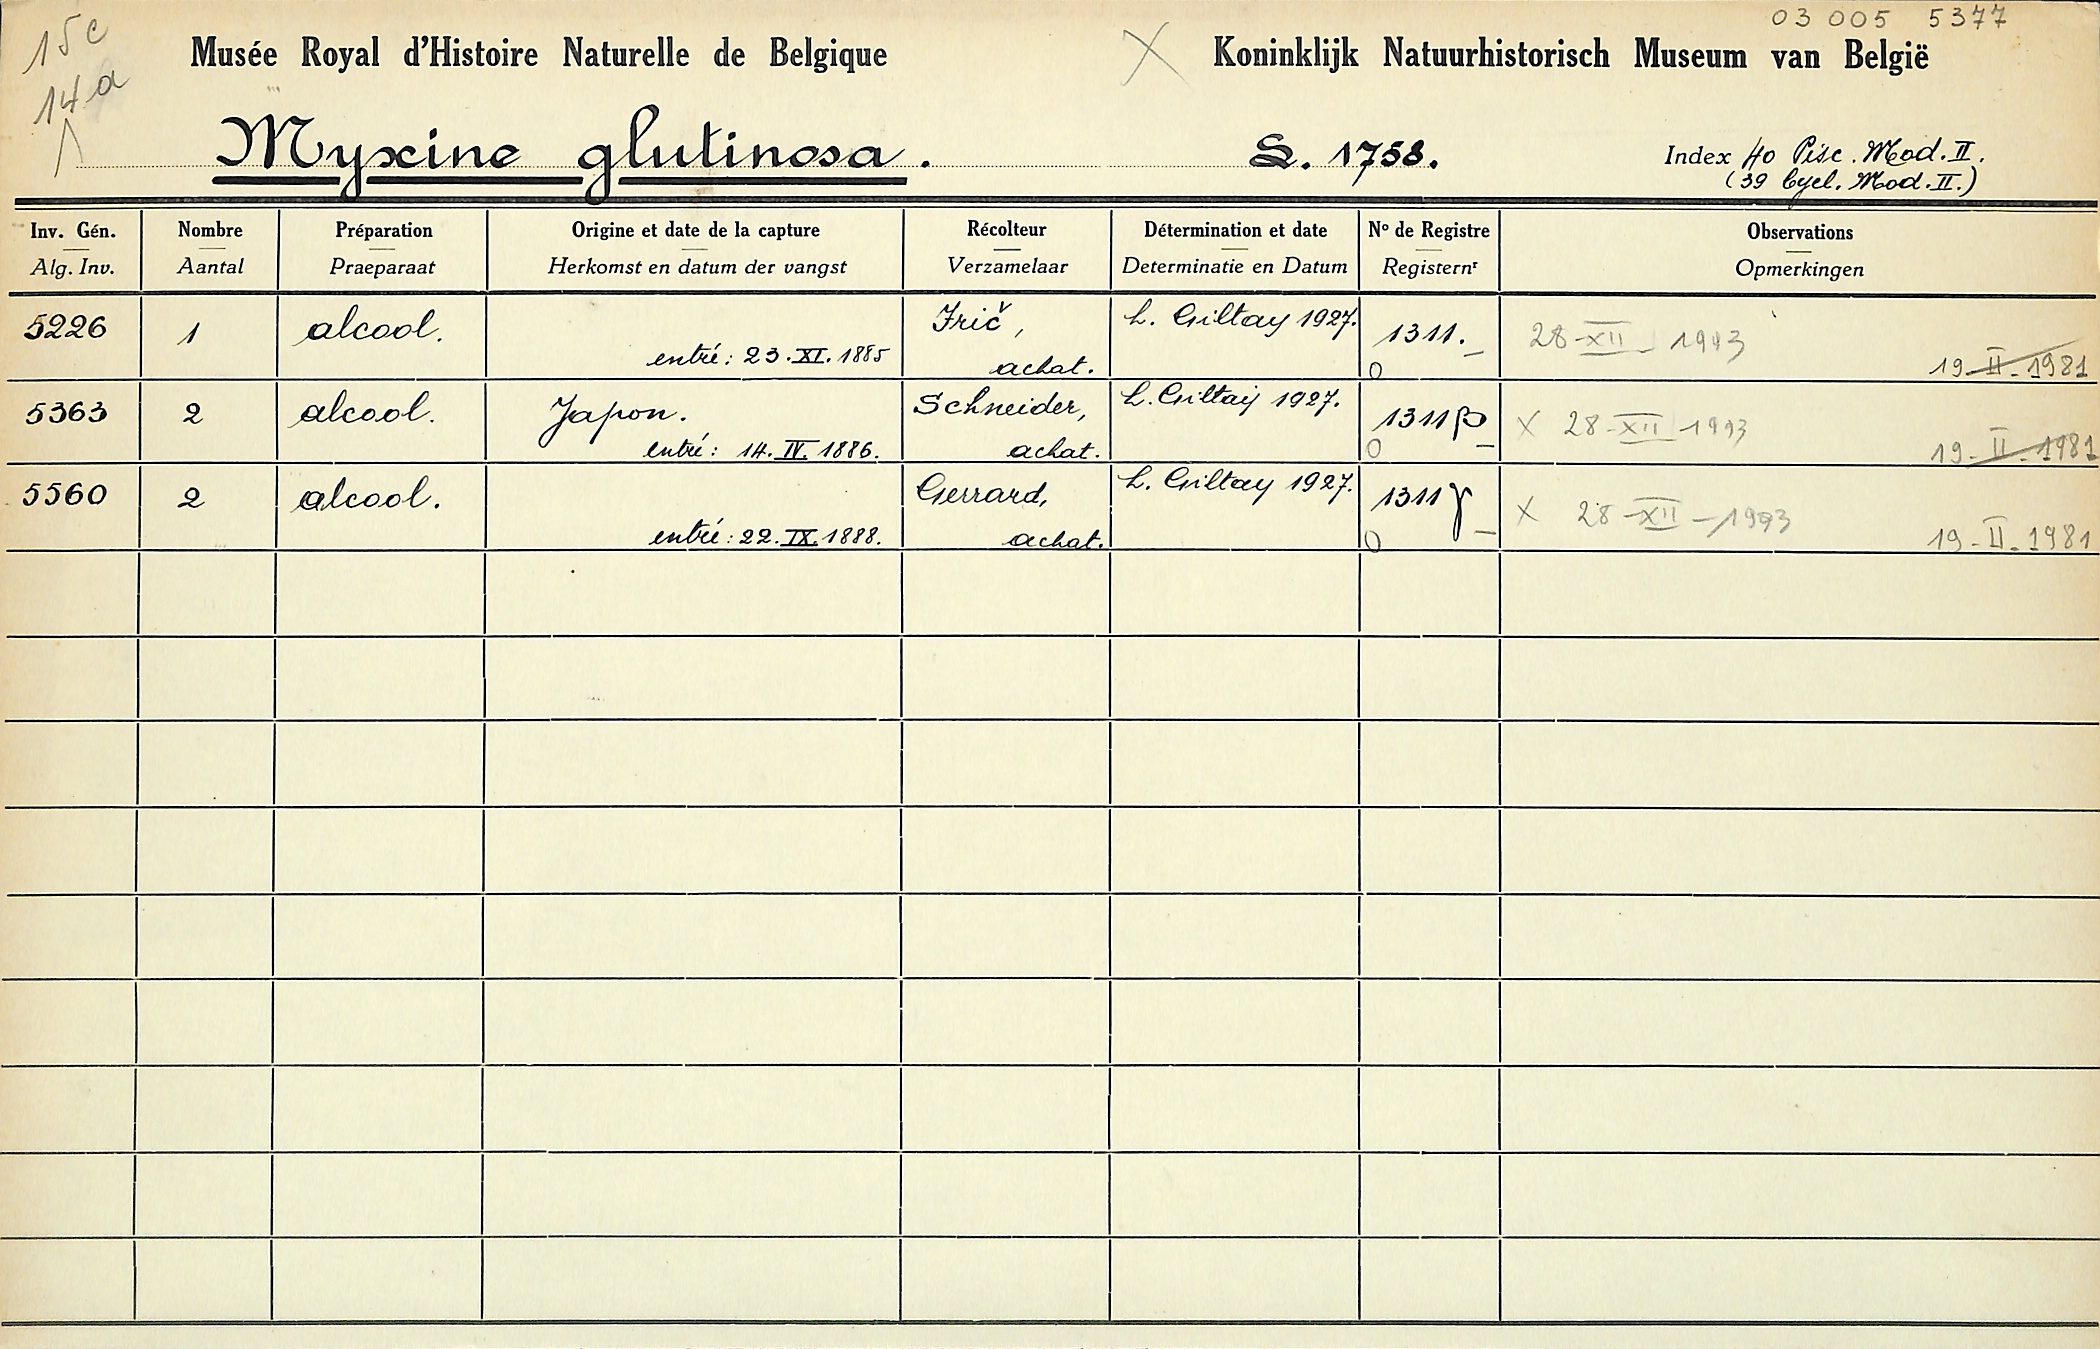 03 005 5377
15c
14a
Musée Royal d'Histoire Naturelle de Belgique
Koninklijk Natuurhistorisch Museum van België
Myxine glutinosa. L. 1758.
Index 40 Pisc. Mod. II.
(39 Cycl. Mod. II.)
Inv. Gén. Nombre Préparation Origine et date de la capture Récolteur Détermination et date N° de Registre Observations
Alg. Inv. Aantal Praeparaat Herkomst en datum der vangst Verzamelaar Determinatie en Datum Registernr Opmerkingen
5226 1 alcool. Frič, L. Giltay 1927. 1311. 28-XII 1993
entré: 23.XI.1885 achat. O 19-II-1981
5363 2 alcool. Japon. Schneider, L. Giltay 1927. 1311β X 28-XII 1993
entré: 14.IV.1886. achat. O 19-II-1981
5560 2 alcool. Gerrard, L. Giltay 1927. 1311γ X 28-XII-1993
entré: 22.IX.1888. achat. O 19-II-1981